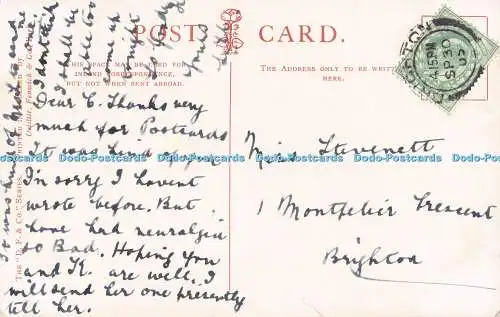 POST CARD.
THIS SPACE MAY BE USED FOR
INLAND CORRESPONDENCE,
BUT NOT WHEN SENT ABROAD.
THE ADDRESS ONLY TO BE WRITTEN
HERE.
BRIGHTON
4.15 PM
SP 30
05
Dear C. Thanks very
much for Postcards
It was kind of you
I'm sorry I havent
wrote before. But
have had neuralgia
so Bad. Hoping you
and K. are well. I
will send her one presently
tell her.
I don't think
I shall be
able to
come up
to night
Yours
Miss Stevenett
1 Montpelier Crescent
Brighton
THE "D. F. & Co." SERIES.
Dodo-Postcards Dodo-Postcards Dodo-Postcards Dodo-Postcards Dodo-Postcards